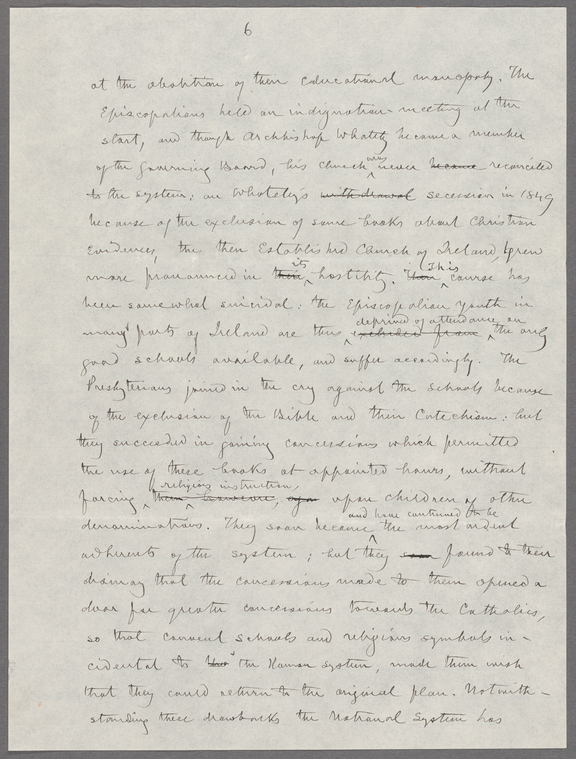 6
at the abolition of their educational monopoly. The
Episcopalians held an indignation-meeting at the
start, and though Archbishop Whately became a member
of the governing Board, his church was never became reconciled
to the system: on Whately's withdrawal secession in 1849
because of the exclusion of some books about Christian
Evidences, the then Established Church of Ireland, grew
more pronounced in their its hostility. Their This course has
been somewhat suicidal: the Episcopalian youth in
many parts of Ireland are thus excluded from deprived of attendance on the only
good schools available, and suffer accordingly. The
Presbyterians joined in the cry against the schools because
of the exclusion of the Bible and their Catechism: but
they succeeded in gaining concessions which permitted
the use of these books at appointed hours, without
forcing them however, religious instruction, upon children of other
denominations. They soon became and have continued to be the most ardent
adherents of the system; but they soon found to their
dismay that the concessions made to them opened a
door for greater concessions towards the Catholics,
so that convent schools and religious symbols in-
cidental to the Roman system, made them wish
that they could return to the original plan. Notwith-
standing these drawbacks the National System has